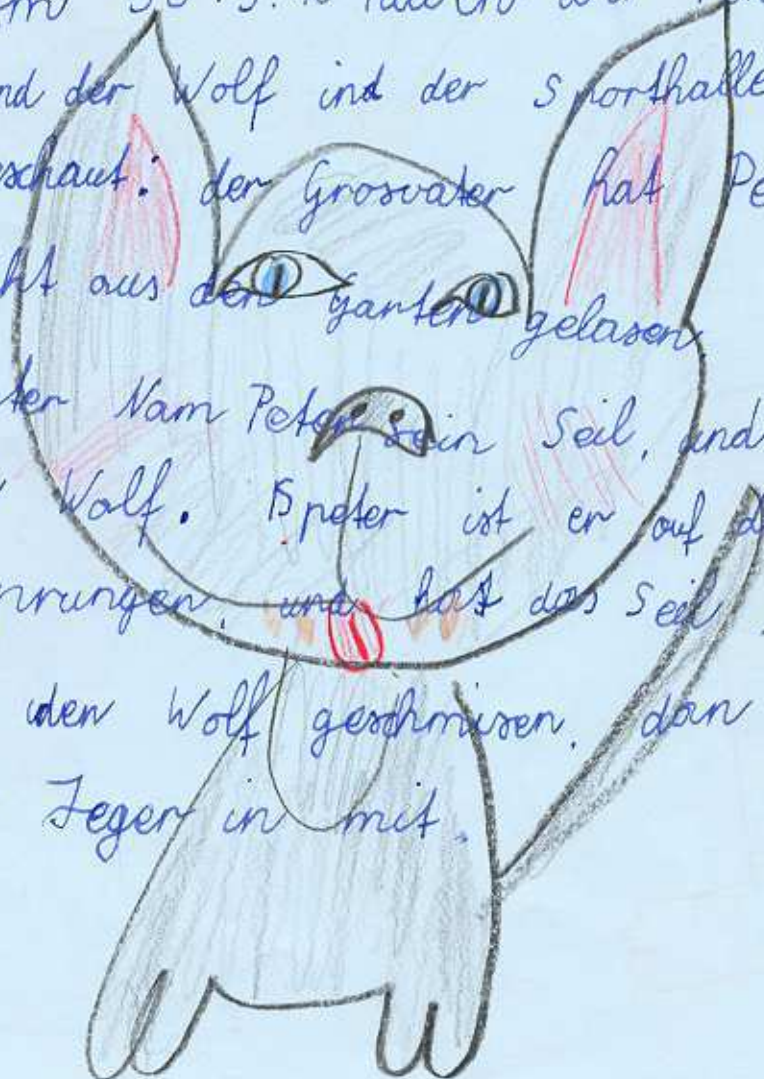 nd der Wolf ind der Sporthalle
schaut. der Grosvater hat Pe
ht aus den Garten gelasen
ter Nam Peter sein Seil, und
Wolf. Speter ist er auf d
nrungen, und hat das Seil
den Wolf geschmisen, dan
Jeger in mit.